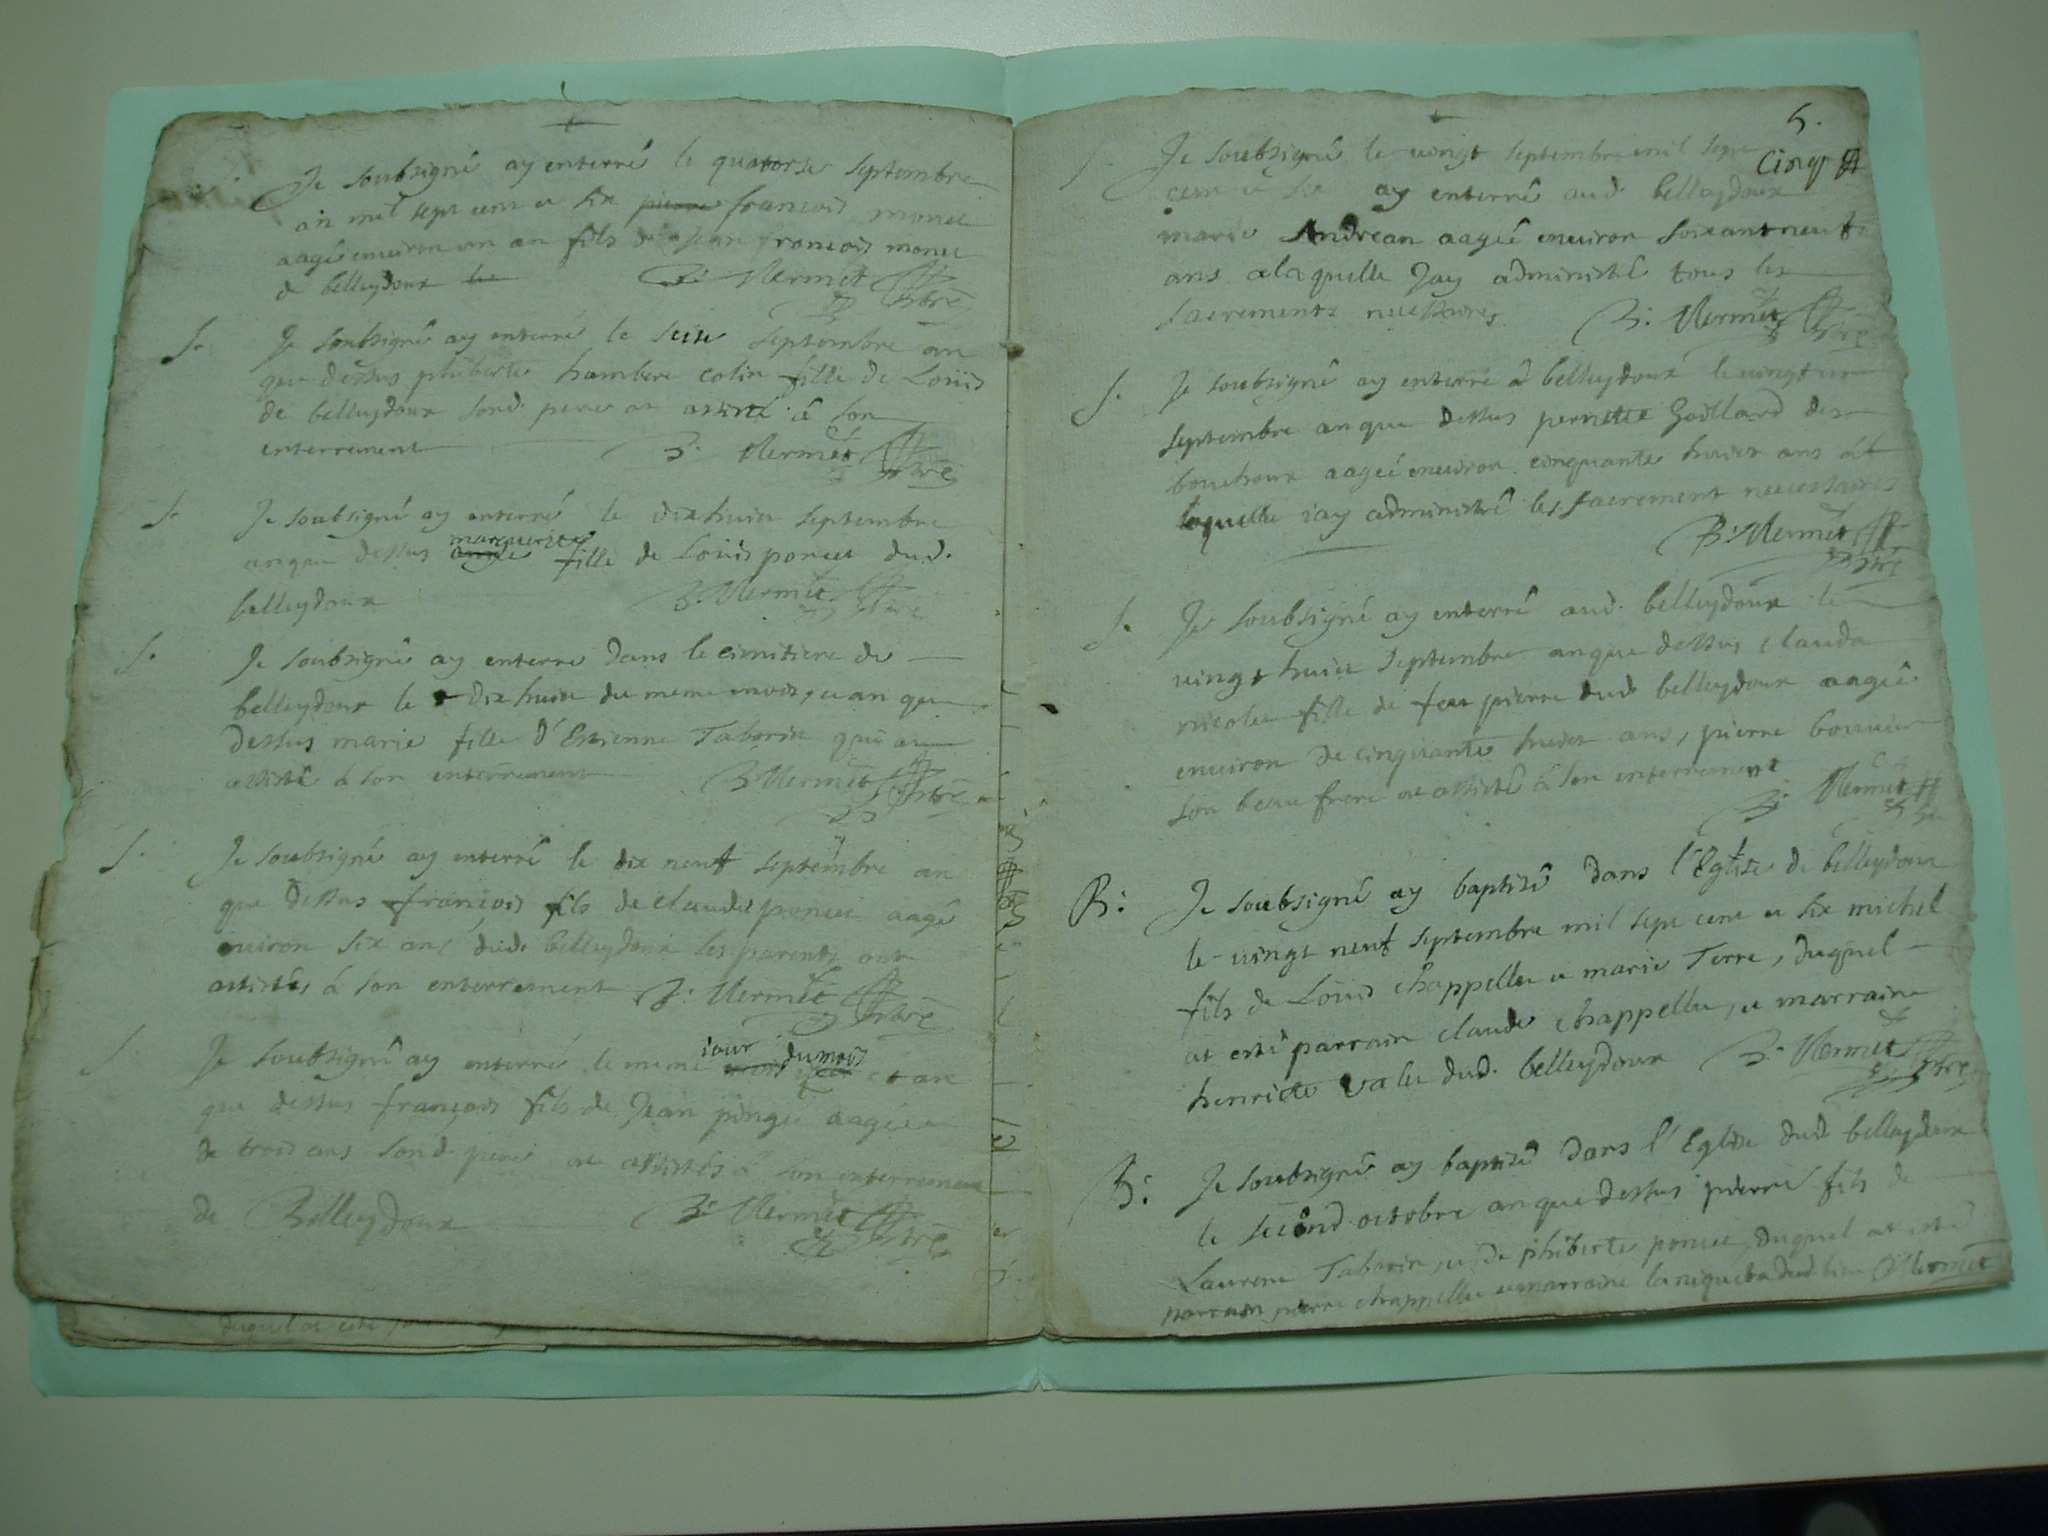 Je soubsigné ay enterré le quatorse septembre
an mil sept cent et six pierre francois monet
aagé environ un an fils de Jean francois monet
de belleydoux
B: Mermet ptre
S. Je soubsigné ay enterré le seise septembre an
que dessus philberte hambert colin fille de Loüis
de belleydoux sond. pere at assisté â son
enterrement B: Mermet ptre
S. Je soubsigné ay enterré le dixhuict septembre
an que dessus marguerite fille de Loüis poncet dud.
belleydoux B: Mermet ptre
S. Je soubsigné ay enterré dans le cimitiere de
belleydoux le dixhuict du meme mois, et an que
dessus marie fille d'Estienne Tabarin qui at
assisté â son enterrement B Mermet ptre
S. Je soubsigné ay enterré le dix neuf septembre an
que dessus francois fils de claude poncet aagé
environ six ans dud. belleydoux les parents ont
assistés â son enterrement B: Mermet ptre
S. Je soubsigné ay enterré le meme jour du mois et an
que dessus francois fils de Jean pingé aagé
de trois ans sond. pere at assistés â son enterrement
de Belleydoux B: Mermet ptre
5.
Cinq
Je soubsigné le vingt septembre mil sept
cent et six ay enterré aud. belleydoux
marie Andrean aagée environ soixant neuf
ans a laquelle Jay administré tous les
sacrements necessaires B: Mermet ptre
S. Je soubsigné ay enterré â belleydoux le vingt un
septembre an que dessus pernette Goillard des
bouchoux aagée environ cinquante huict ans â
laquelle jay administré les sacrement necessaires
B: Mermet ptre
S. Je soubsigné ay enterré aud. belleydoux le
vingt huict septembre an que dessus clauda
nicolet fille de feu pierre dud. belleydoux aagée
environ de cinquante huict ans, pierre bouvier
son beau frere at assisté â son enterrement
B: Mermet ptre
B: Je soubsigné ay baptisé dans l'Eglise de belleydoux
le vingt neuf septembre mil sept cent et six michel
fils de Loüis chappellu et marie Terre, duquel
at esté parrain claude chappellu, et marraine
henriete valet dud. belleydoux B. Mermet ptre
B: Je soubsigné ay baptisé dans l'Eglise dud. belleydoux
le second octobre an que dessus pierre fils de
Laurent Tabarin, et de philberte poncet, duquel at esté
parrain pierre chappellu et marraine dud. lieu B Mermet